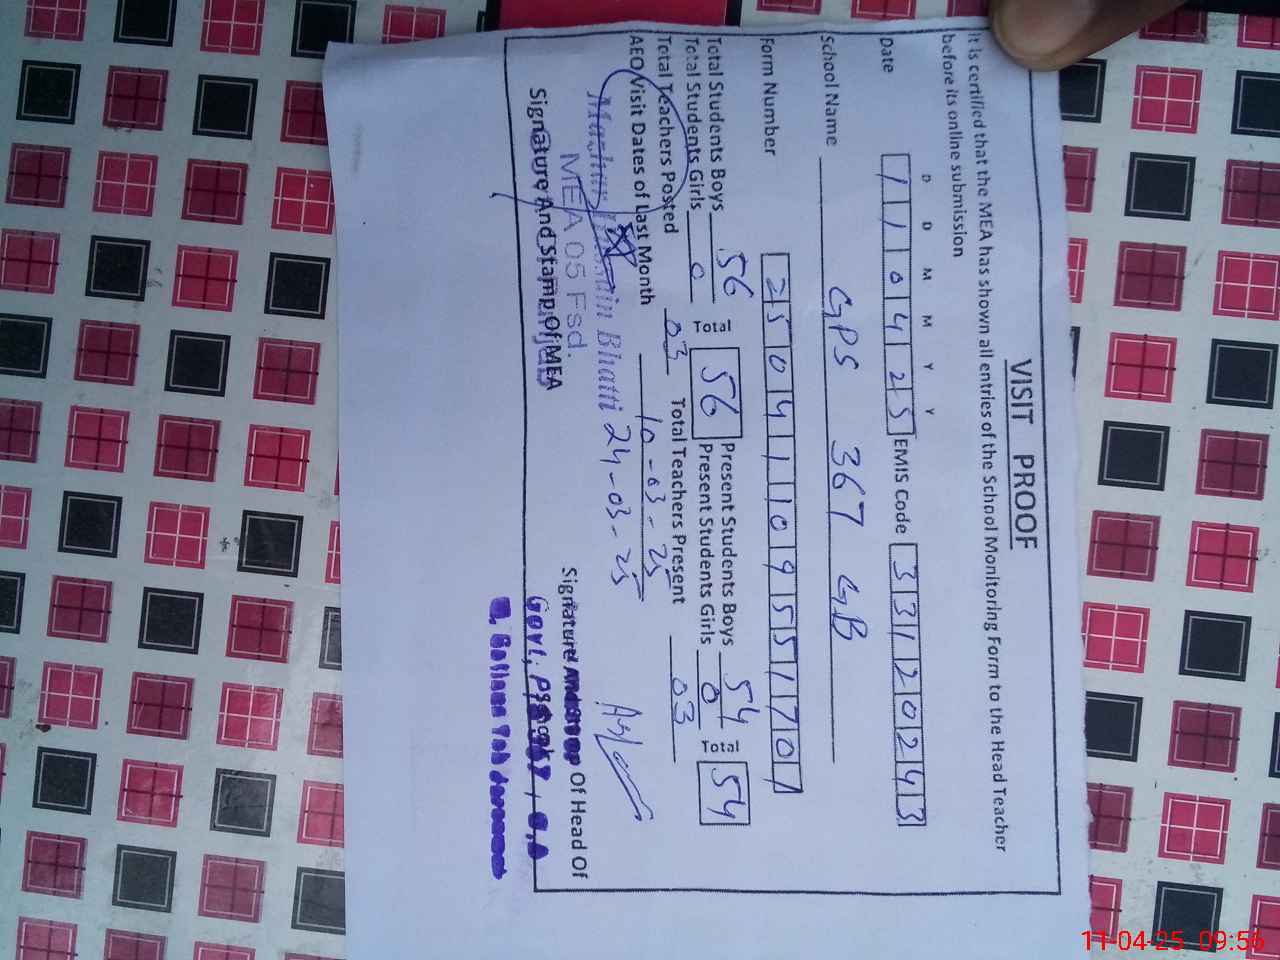 VISIT PROOF
It is certified that the MEA has shown all entries of the School Monitoring Form to the Head Teacher
before its online submission
D D M M Y Y
Date 1 1 0 4 2 5 EMIS Code 3 3 1 2 0 2 4 3
School Name GPS 367 GB
Form Number 2 5 0 4 1 1 0 9 5 5 1 7 0 1
Total Students Boys 56 Total 56 Present Students Boys 54 Total 54
Total Students Girls 0 Present Students Girls 0
Total Teachers Posted 03 Total Teachers Present 03
AEO Visit Dates of Last Month 10-03-25
24-03-25
Mazhar Hussain Bhatti
MEA 05 Fsd.
Signature And Stamp Of MEA
Signature And Stamp Of Head Of
Govt.
11-04-25 09:56